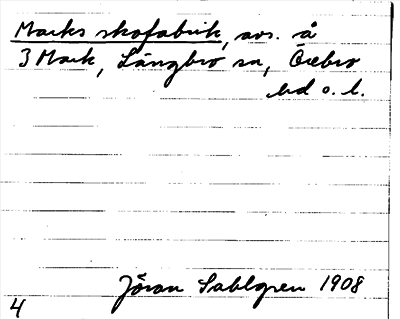 Marks skofabrik, avs. å
3 Mark, Långbro sn, Örebro
hd o. l.
Jöran Sahlgren 1908
4